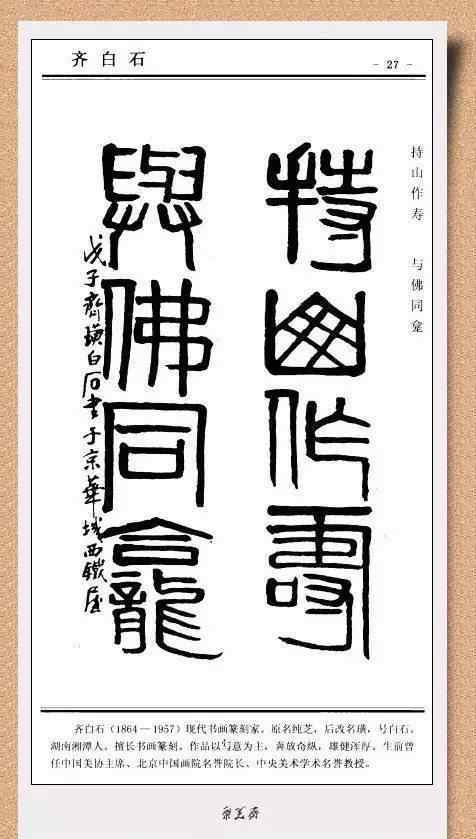 齐白石
- 27 -
持山作寿 与佛同龛
持山作壽
與佛同龕
戊子齊璜白石書于京華城西鐵屋
齐白石（1864—1957）现代书画篆刻家。原名纯芝，后改名璜，号白石。
湖南湘潭人。擅长书画篆刻。作品以写意为主，奔放奇纵，雄健浑厚，生前曾
任中国美协主席、北京中国画院名誉院长、中央美术学术名誉教授。